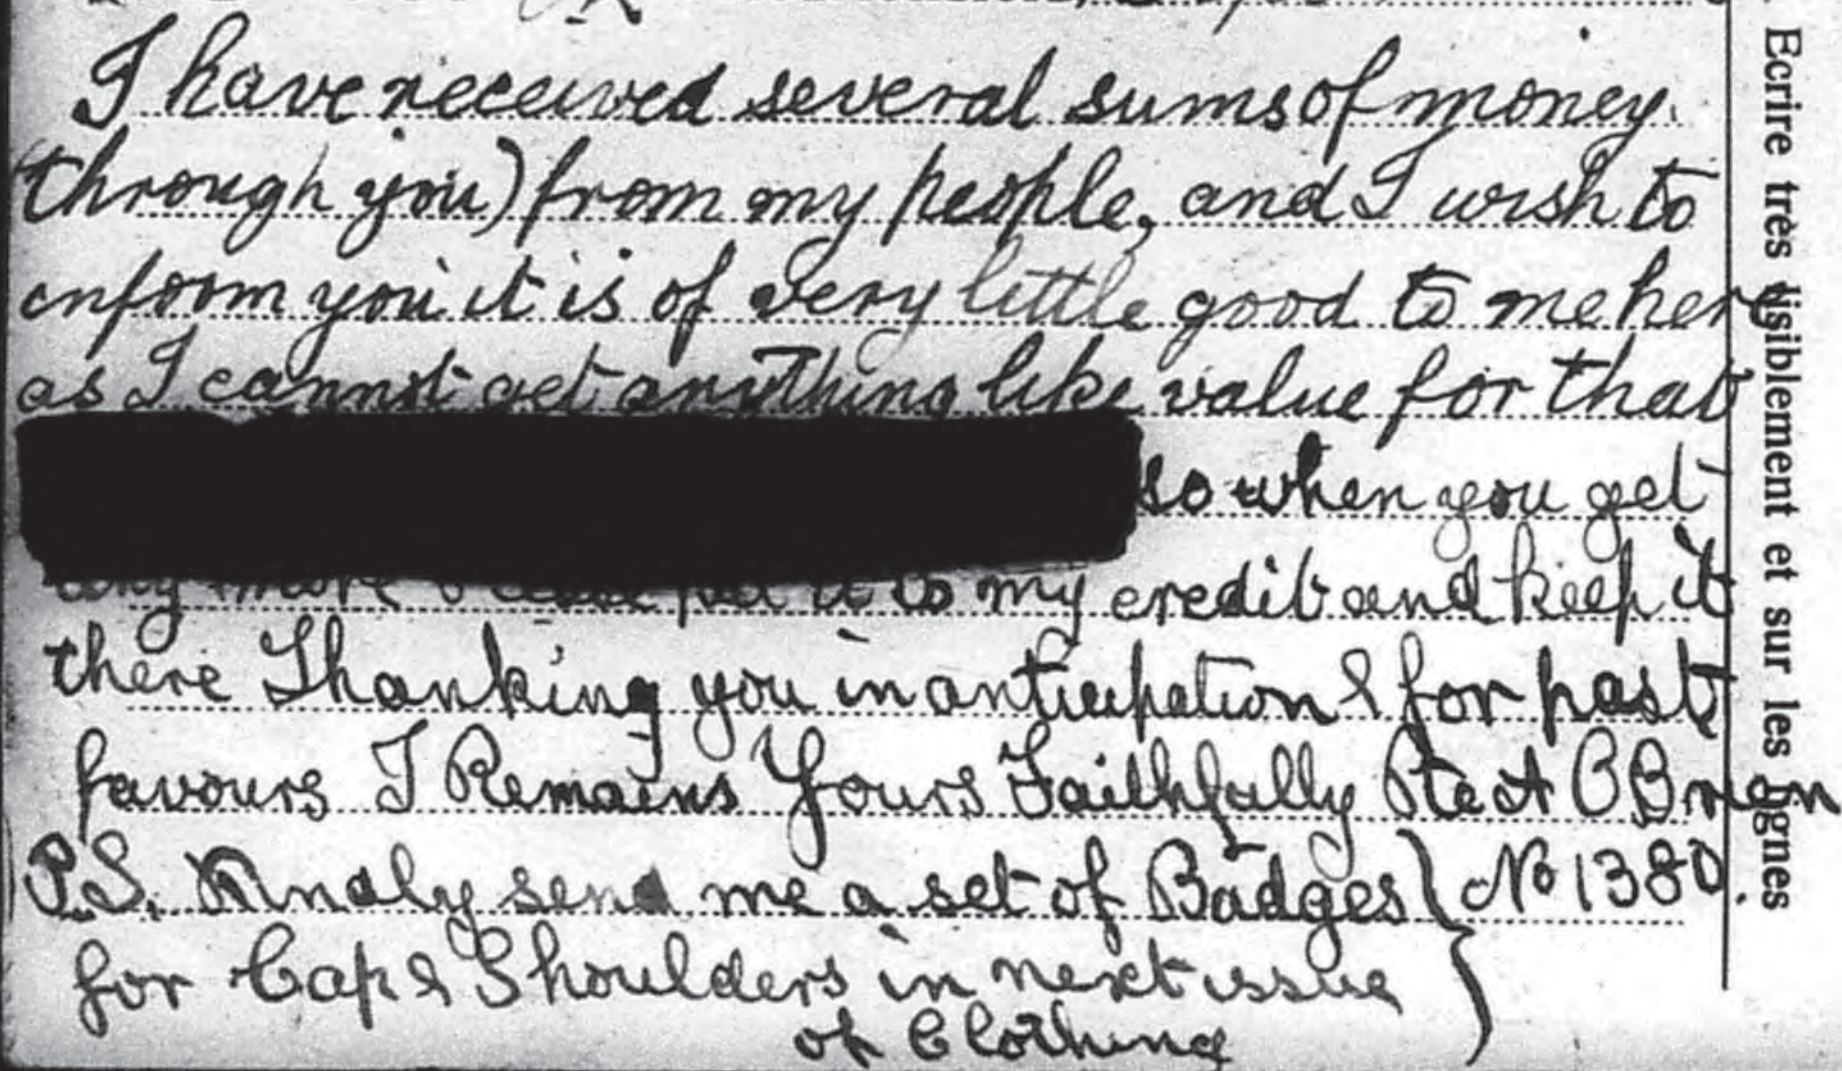 I have received several sums of money.
(through you) from my people, and I wish to
inform you it is of very little good to me here
as I cannot get anything like value for that
so when you get
any more to my credit and keep it
there Thanking you in anticipation & for past
favours I Remains Yours Faithfully Pte A O Brien
P.S. Kindly send me a set of Badges } No 1380.
for Cap & Shoulders in next issue
of Clothing
Ecrire très lisiblement et sur les lignes